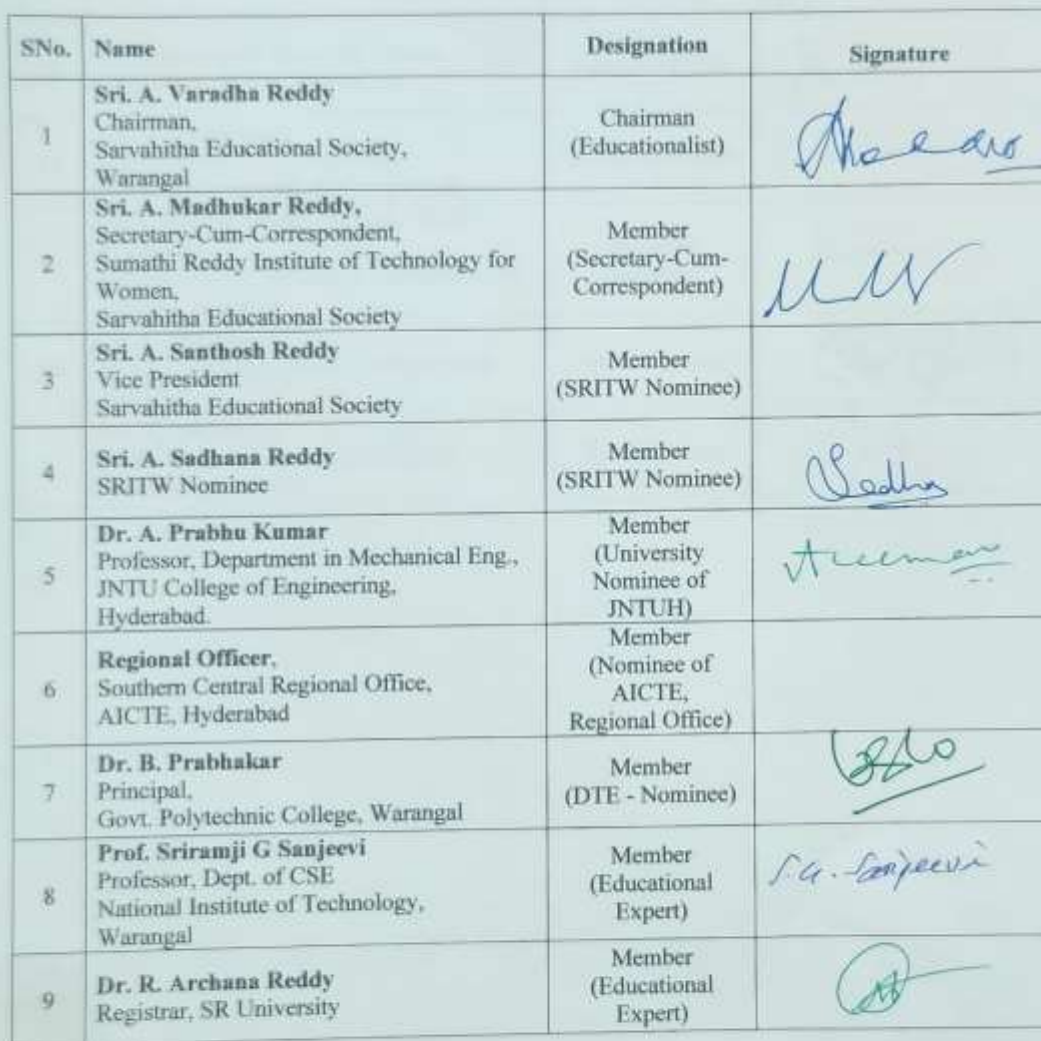 SNo. Name Designation Signature
Sri. A. Varadha Reddy
Chairman,
Sarvahitha Educational Society,
Warangal
1
Chairman
(Educationalist)
Sri. A. Madhukar Reddy,
Secretary-Cum-Correspondent,
Sumathi Reddy Institute of Technology for
Women,
Sarvahitha Educational Society
2
Member
(Secretary-Cum-
Correspondent)
Sri. A. Santhosh Reddy
Vice President
Sarvahitha Educational Society
3
Member
(SRITW Nominee)
Sri. A. Sadhana Reddy
SRITW Nominee
4
Member
(SRITW Nominee)
Dr. A. Prabhu Kumar
Professor, Department in Mechanical Eng.,
JNTU College of Engineering,
Hyderabad.
5
Member
(University
Nominee of
JNTUH)
Regional Officer,
Southern Central Regional Office,
AICTE, Hyderabad
6
Member
(Nominee of
AICTE,
Regional Office)
Dr. B. Prabhakar
Principal,
Govt. Polytechnic College, Warangal
7
Member
(DTE - Nominee)
Prof. Sriramji G Sanjeevi
Professor, Dept. of CSE
National Institute of Technology,
Warangal
8
Member
(Educational
Expert)
S.G. Sanjeevi
Dr. R. Archana Reddy
Registrar, SR University
9
Member
(Educational
Expert)